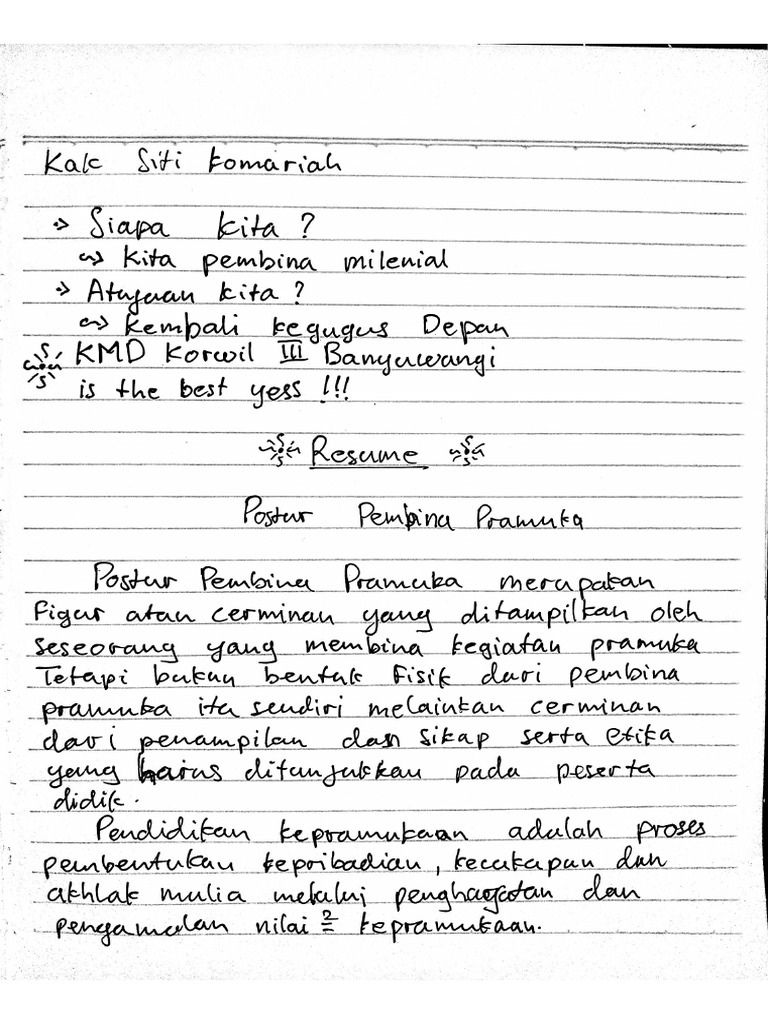 Kak Siti Komariah
→ Siapa kita?
↝ Kita pembina milenial
→ Atujuan kita?
↝ Kembali kegugus Depan
KMD Korwil III Banyuwangi
is the best yess !!!
Resume
Postur Pembina Pramuka
Postur Pembina Pramuka merupakan
Figur atau cerminan yang ditampilkan oleh
seseorang yang membina kegiatan pramuka
Tetapi bukan bentuk Fisik dari pembina
pramuka itu sendiri melainkan cerminan
dari penampilan dan sikap serta etika
yang harus ditunjukkan pada peserta
didik.
Pendidikan kepramukaan adalah proses
pembentukan kepribadian, kecakapan dan
akhlak mulia melalui penghayatan dan
pengamalan nilai ² kepramukaan.